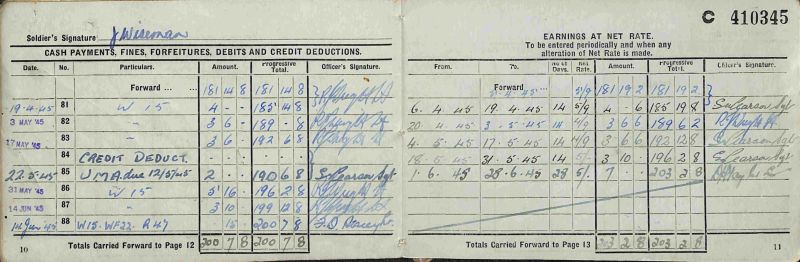 Soldier's Signature J Wiseman
CASH PAYMENTS, FINES, FORFEITURES, DEBITS AND CREDIT DEDUCTIONS.
Date. No. Particulars. Amount. Progressive Total. Officer's Signature.
Forward ... ... 181 14 8 181 14 8
19.4.45 81 W 15 4 - - 185 14 8
3 MAY '45 82 3 6 - 189 - 8
17 MAY '45 83 3 6 192 6 8
84 CREDIT DEDUCT.
22.5.45 85 U M A. due 12/5/45 2 - 190 6 8 Sgt
31 MAY '45 86 W 15 5 16 - 196 2 8
14 JUN '45 87 3 10 - 199 12 8
14 Jun '45 88 W15. WF22. R47 15 - 200 7 8
10 Totals Carried Forward to Page 12 200 7 8 200 7 8
C 410345
EARNINGS AT NET RATE.
To be entered periodically and when any
alteration of Net Rate is made.
From. To. No. of Days. Net. Rate. Amount. Progressive Total. Officer's Signature.
Forward 5/9 181 19 2 181 19 2
6. 4. 45 19. 4. 45 14 5/9 4 - 6 185 19 8 Sgt
20. 4. 45 3. 5. 45 14 3 6 6 189 6 2
4. 5. 45 17. 5. 45 14 3 6 6 192 12 8 Sgt
18. 5. 45 31. 5. 45 14 5/- 3 10 - 196 2 8 Sgt
1. 6. 45 28. 6. 45 28 5/- 7 - 203 2 8
Totals Carried Forward to Page 13 203 2 8 203 2 8 11